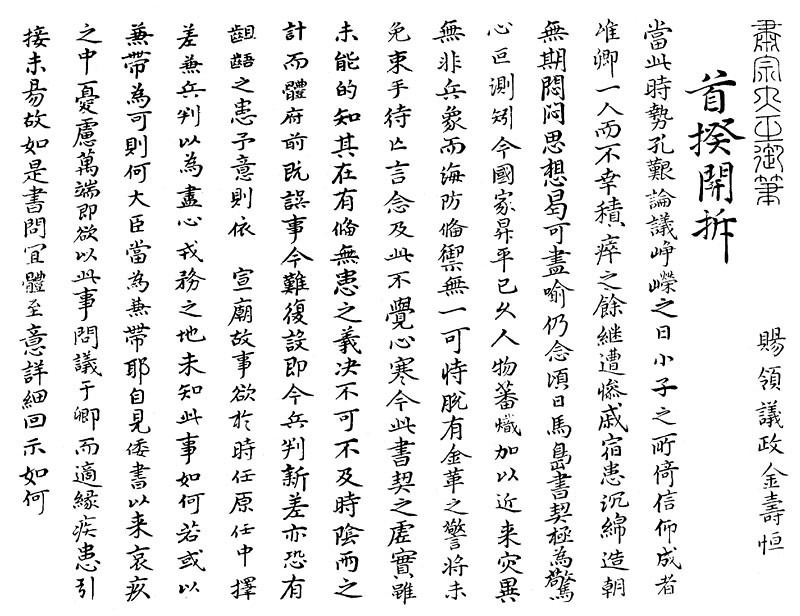 肅宗大王御筆
首揆開拆
賜領議政金壽恒
當此時勢孔艱論議崢嶸之日小子之所倚信仰成者
唯卿一人而不幸積瘁之餘繼遭慘戚宿患沉綿造朝
無期悶悶思想曷可盡喻仍念頃日馬島書契極為驚
心叵測矧今國家昇平已久人物蕃熾加以近来灾異
無非兵象而海防俻禦無一可恃脫有金革之警将未
免束手待亡言念及此不覺心寒今此書契之虛實雖
未能的知其在有俻無患之義决不可不及時陰雨之
計而體府前既誤事今難復設即今兵判新差亦恐有
齟齬之患予意則依 宣廟故事欲於時任原任中擇
差兼兵判以為盡心戎務之地未知此事如何若或以
兼帶為可則何大臣當為兼帶耶自見倭書以来哀疚
之中憂慮萬端即欲以此事問議于卿而適緣疾患引
接未易故如是書問冝體至意詳細回示如何